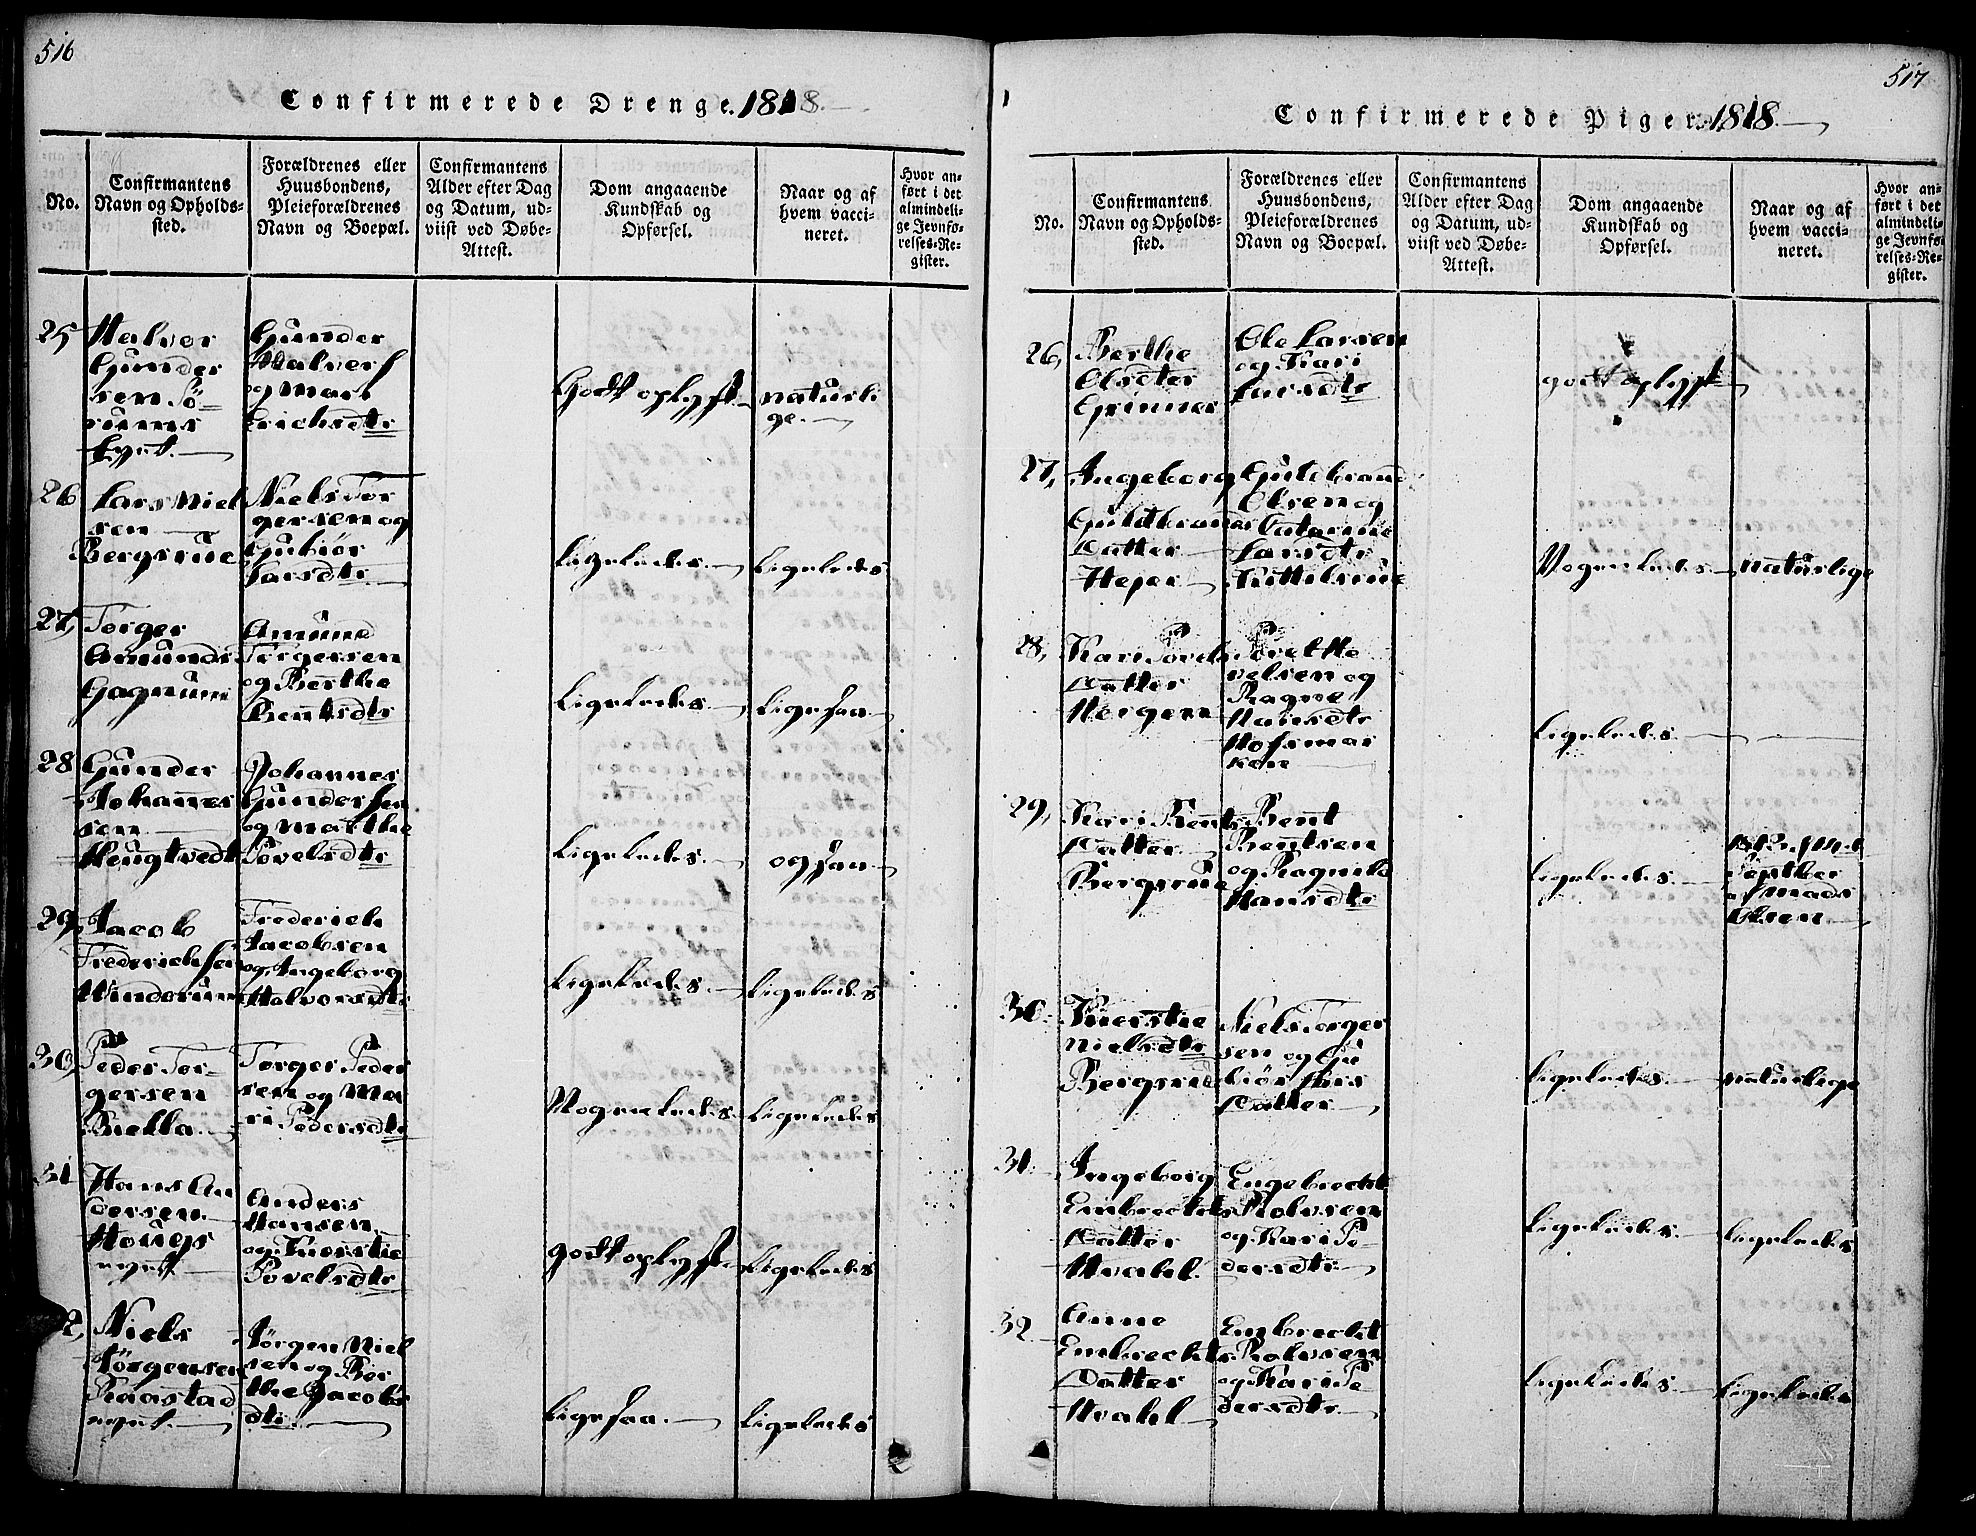 516
Confirmerede Drenge. 1818.
No.
Confirmantens
Navn og Opholds-
sted.
Forældrenes eller
Huusbondens,
Pleieforældrenes
Navn og Boepæl.
Confirmantens
Alder efter Dag
og Datum, ud-
viist ved Døbe-
Attest.
Dom angaaende
Kundskab og
Opførsel.
Naar og af
hvem vacci-
neret.
Hvor an-
ført i det
almindeli-
ge Jevnfø-
relses-Re-
gister.
25
Halvor
Gunder
sen Sö-
rums
Eyet.
Gunder
Halvors
og Mari
Erichsdtr
Godt oplyst.
naturli
ge.
26
Lars Niel
sen
Bergsrue
Niels Tor
gersen og
Gubiör
Larsdtr
Ligeledes.
Ligeledes
27,
Torger
Amunds
Gagnum
Amund
Torgersen
og Berthe
Bentsdtr
Ligeledes.
Ligesaa
28
Gunder
Johannes
sen
Heugtvedt
Johannes
Gundersen
og Marthe
Povelsdtr
Ligeledes.
ogsaa
29,
Jacob
Frederichsen
Winderum
Frederich
Jacobsen
og Ingeborg
Halvorsdtr
Ligeledes.
Ligeledes
30,
Peder Tor-
gersen
Biella.
Torger Peder
sen og Ma
ri Pedersdtr
Nogenledes.
Ligeledes
31
Hans An
dersen
Hougs
eyet.
Anders
Hansen
og Kierstie
Povelsdtr
godt oplyst.
Ligeledes
2,
Niels
Jörgensen
Raastad
eyet.
Jörgen Niel
sen og Ber
the Jacobs
dtr.
Ligesaa.
Ligeledes
517
Confirmerede Piger. 1818.
No.
Confirmantens
Navn og Opholds-
sted.
Forældrenes eller
Huusbondens,
Pleieforældrenes
Navn og Boepæl.
Confirmantens
Alder efter Dag
og Datum, ud-
viist ved Døbe-
Attest.
Dom angaaende
Kundskab og
Opførsel.
Naar og af
hvem vacci-
neret.
Hvor an-
ført i det
almindeli-
ge Jevnfø-
relses-Re-
gister.
26,
Berthe
Olsdter
Grimmer
Ole Larsen
og Kari
Larsdtr
godt oplyst
27,
Ingeborg
Guldbrands
Datter
Hejer
Guldbrand
Olsen og
Catarine
Larsdtr
Kittilsrue
Nogenledes.
naturlige
28,
Kari Povels
Datter
Horgen
Povel
velsen og
Ragne
Hansdtr
Hofsmar
ken
Ligeledes.
29,
Kari Bents
Datter
Bergsrue
Bent
Bentsen
og Ragnild
Hansdtr
Ligeledes.
Septber
af Mads
Olsen
30.
Kierstie
Nielsdtr
Bergsrud
Niels Torger
sen og Gu
biör Lars
Datter
Ligeledes.
naturlige
31.
Ingeborg
Embrechts
Datter
Hvahl.
Engebrecht
Rolvsen
og Kari Pe-
dersdtr.
Ligeledes.
Ligeledes
32
Anne
Embrechts
Datter
Hvahl
Embrecht
Rolvsen
og Kari Pe
dersdtr.
Ligeledes.
Ligeledes